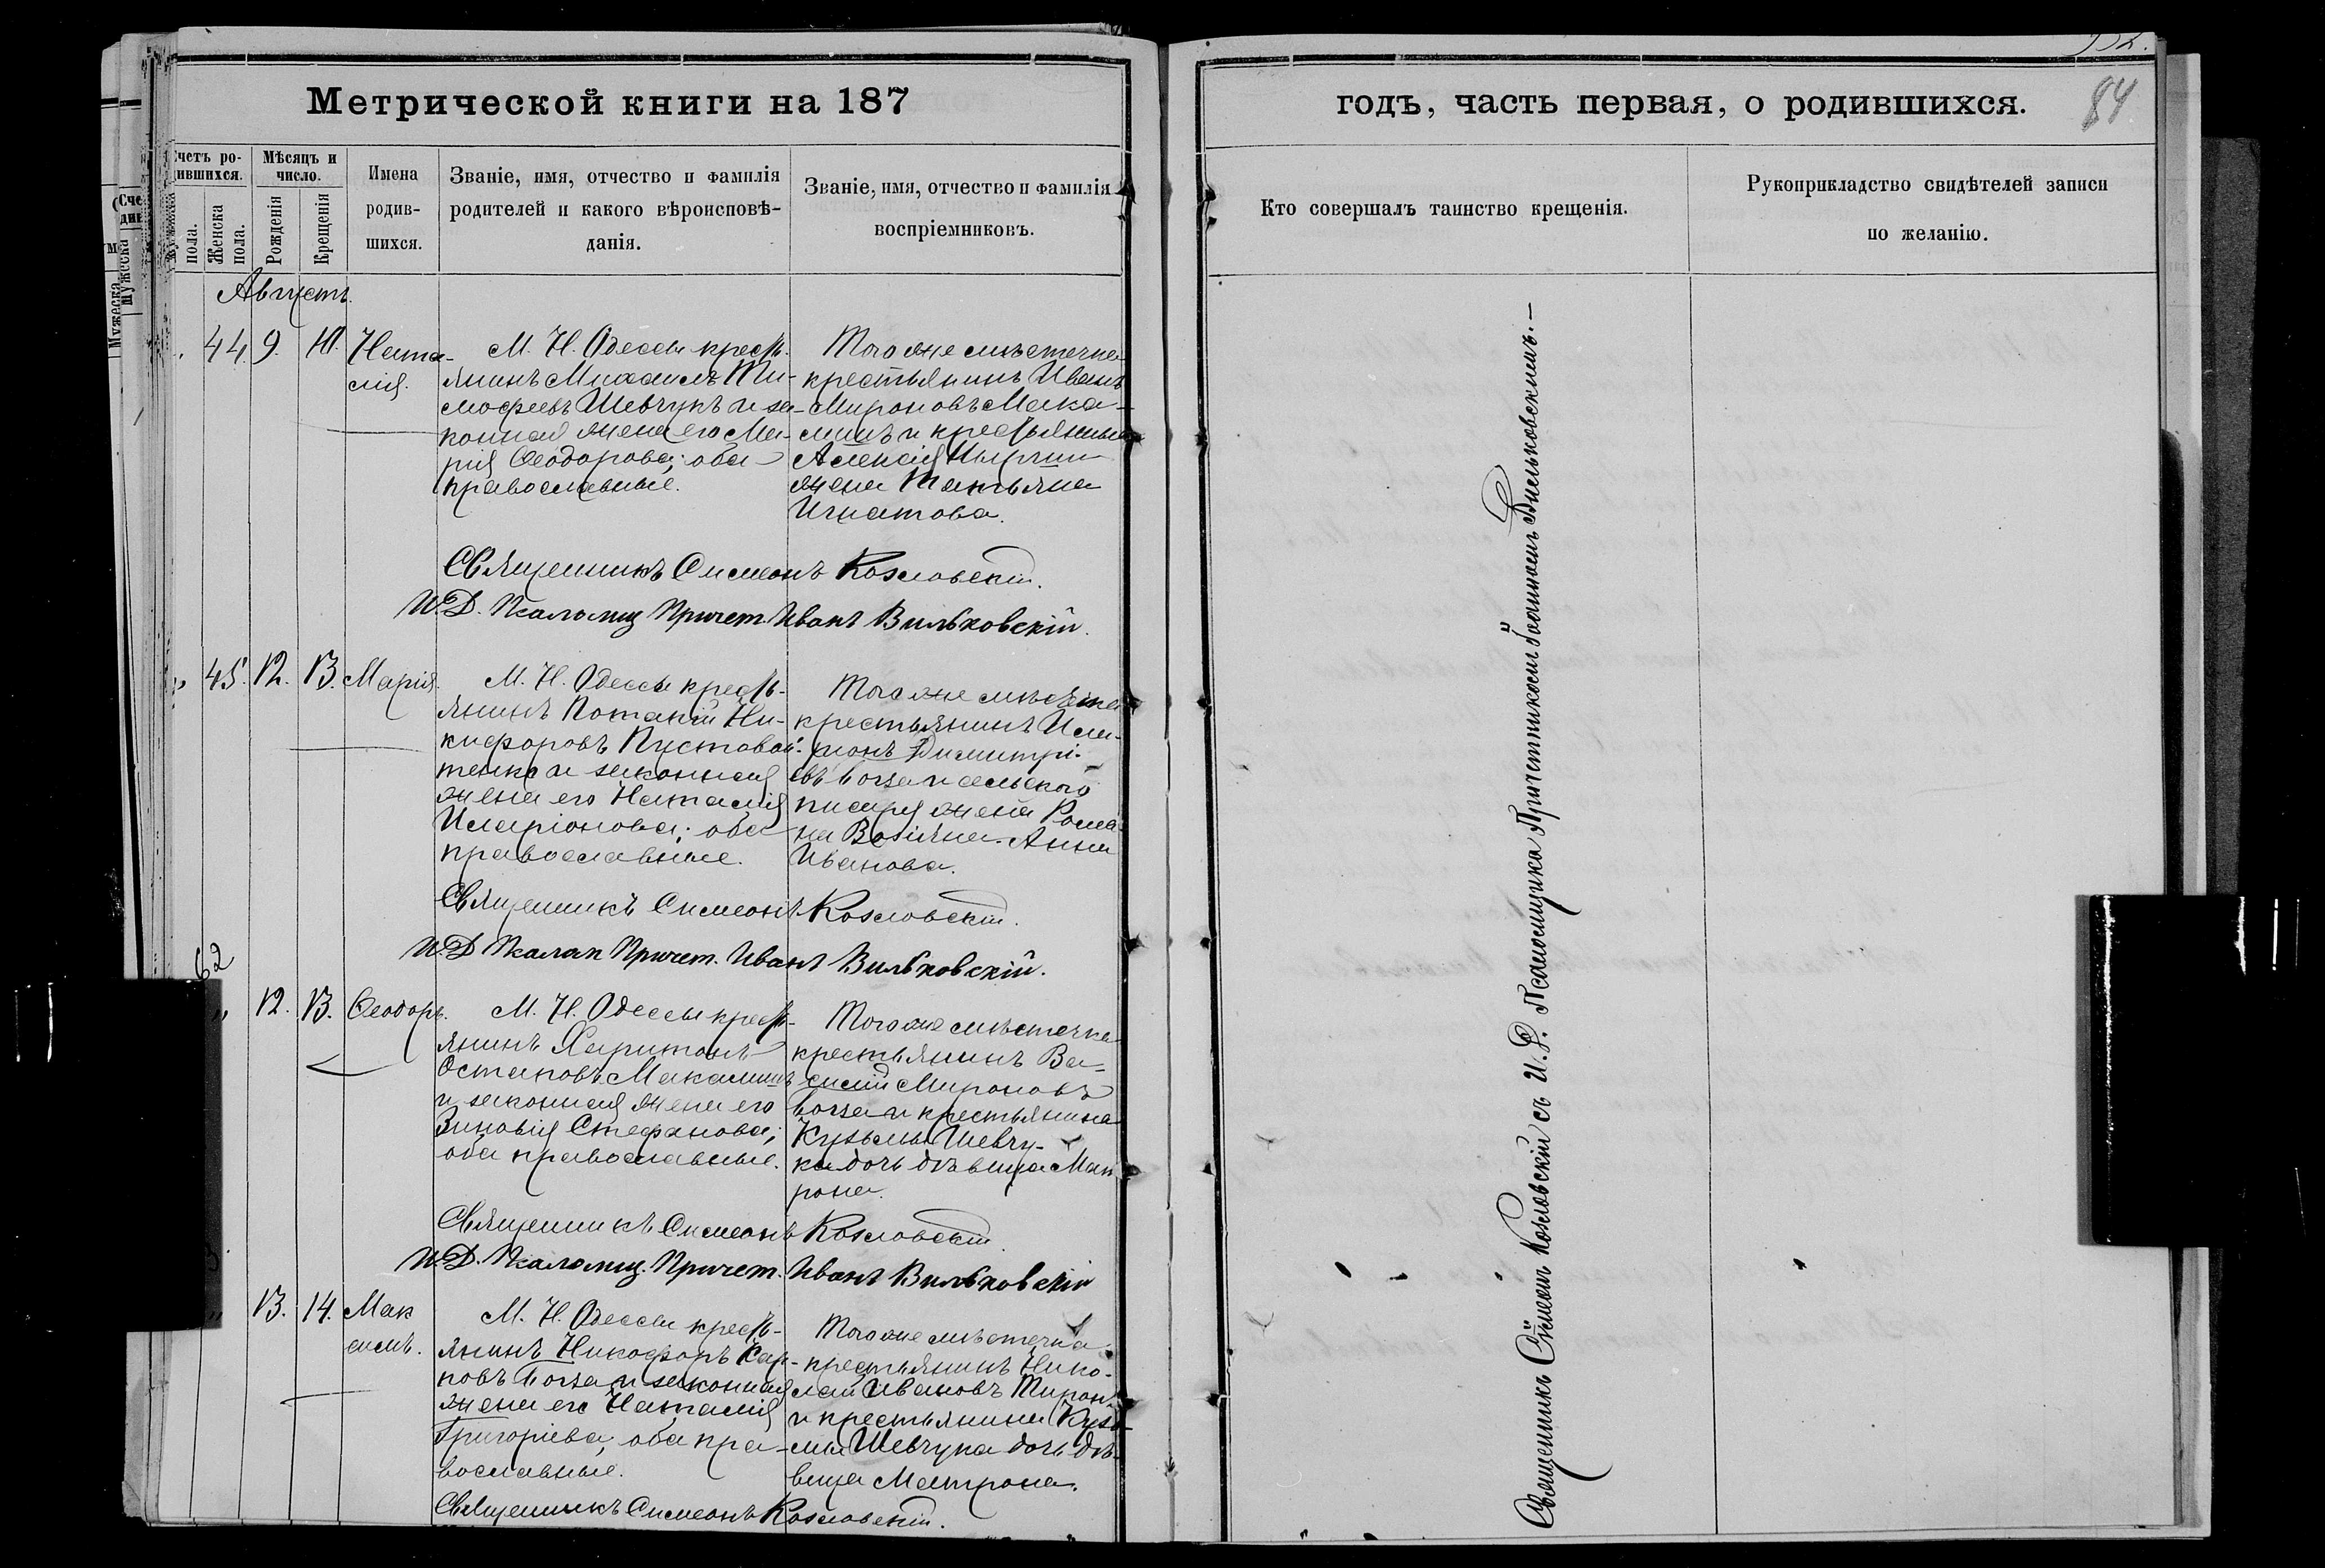 Метрической книги на 187
годъ, часть первая, о родившихся.
84
Счетъ родившихся.
Мужеска пола.
Женска пола.
Мѣсяцъ и число.
Рожденія
Крещенія
Имена родив-
шихся.
Званіе, имя, отчество и фамилія
родителей и какого вѣроисповѣ-
данія.
Званіе, имя, отчество и фамилія
воспріемниковъ.
Кто совершалъ таинство крещенія.
Рукоприкладство свидѣтелей записи
по желанію.
Августъ.
44. 9. 10. Ната-
лія.
М. Н. Одессы кресть-
янинъ Михаилъ Ти-
мофеевъ Шевчукъ и за-
конная жена его Ма-
рія Ѳеодорова; оба
православные.
Того же мѣстечка
крестьянинъ Иванъ
Мироновъ Мака-
лишъ и крестьянина
Алексія
жена Татьяна
Игнатова.
Священникъ Симеонъ Козловскій.
И.Д. Псаломщ Причет. Иванъ Вильковскій.
„ 45. 12. 13. Марія.
М. Н. Одессы кресть-
янинъ Потапій Ни-
кифоровъ Пустовой-
тенко и законная
жена его Наталія
Иларіонова; оба
православные.
Того же мѣстечка
крестьянинъ Ила-
ріонъ Димитрі-
евъ Богза и сельского
писаря жена Рома-
на Анна
Иванова.
Священникъ Симеонъ Козловскій.
И.Д Псалом Причет. Иванъ Вильковскій.
62
„ 12. 13. Ѳеодоръ.
М. Н. Одессы кресть-
янинъ Харитонъ
Остаповъ Макалишъ
и законная жена его
Зиновія Стефанова;
оба православные.
Того же мѣстечка
крестьянинъ Ва-
силій Мироновъ
Богза и крестьянина
Кузьмы Шевчу-
ка дочь дѣвица Мат
рона.
Священникъ Симеонъ Козловскій
И.Д. Псаломщ. Причет. Иванъ Вильковскій
„ 13. 14. Мак
симъ.
М. Н. Одессы кресть-
янинъ Никифоръ Кар-
повъ Богза и законная
жена его Наталія
Григоріева; оба пра-
вославные.
Того же мѣстечка
крестьянинъ Нико-
лай Ивановъ Тиронъ
и крестьянина Кузь-
мы Шевчука дочь дѣ-
вица Матрона.
Священникъ Симеонъ Козловскій.
Священникъ Сѵмеонъ Козловскій съ И.Д. Псаломщика Причетникомъ Іоанномъ Вильковскимъ.—